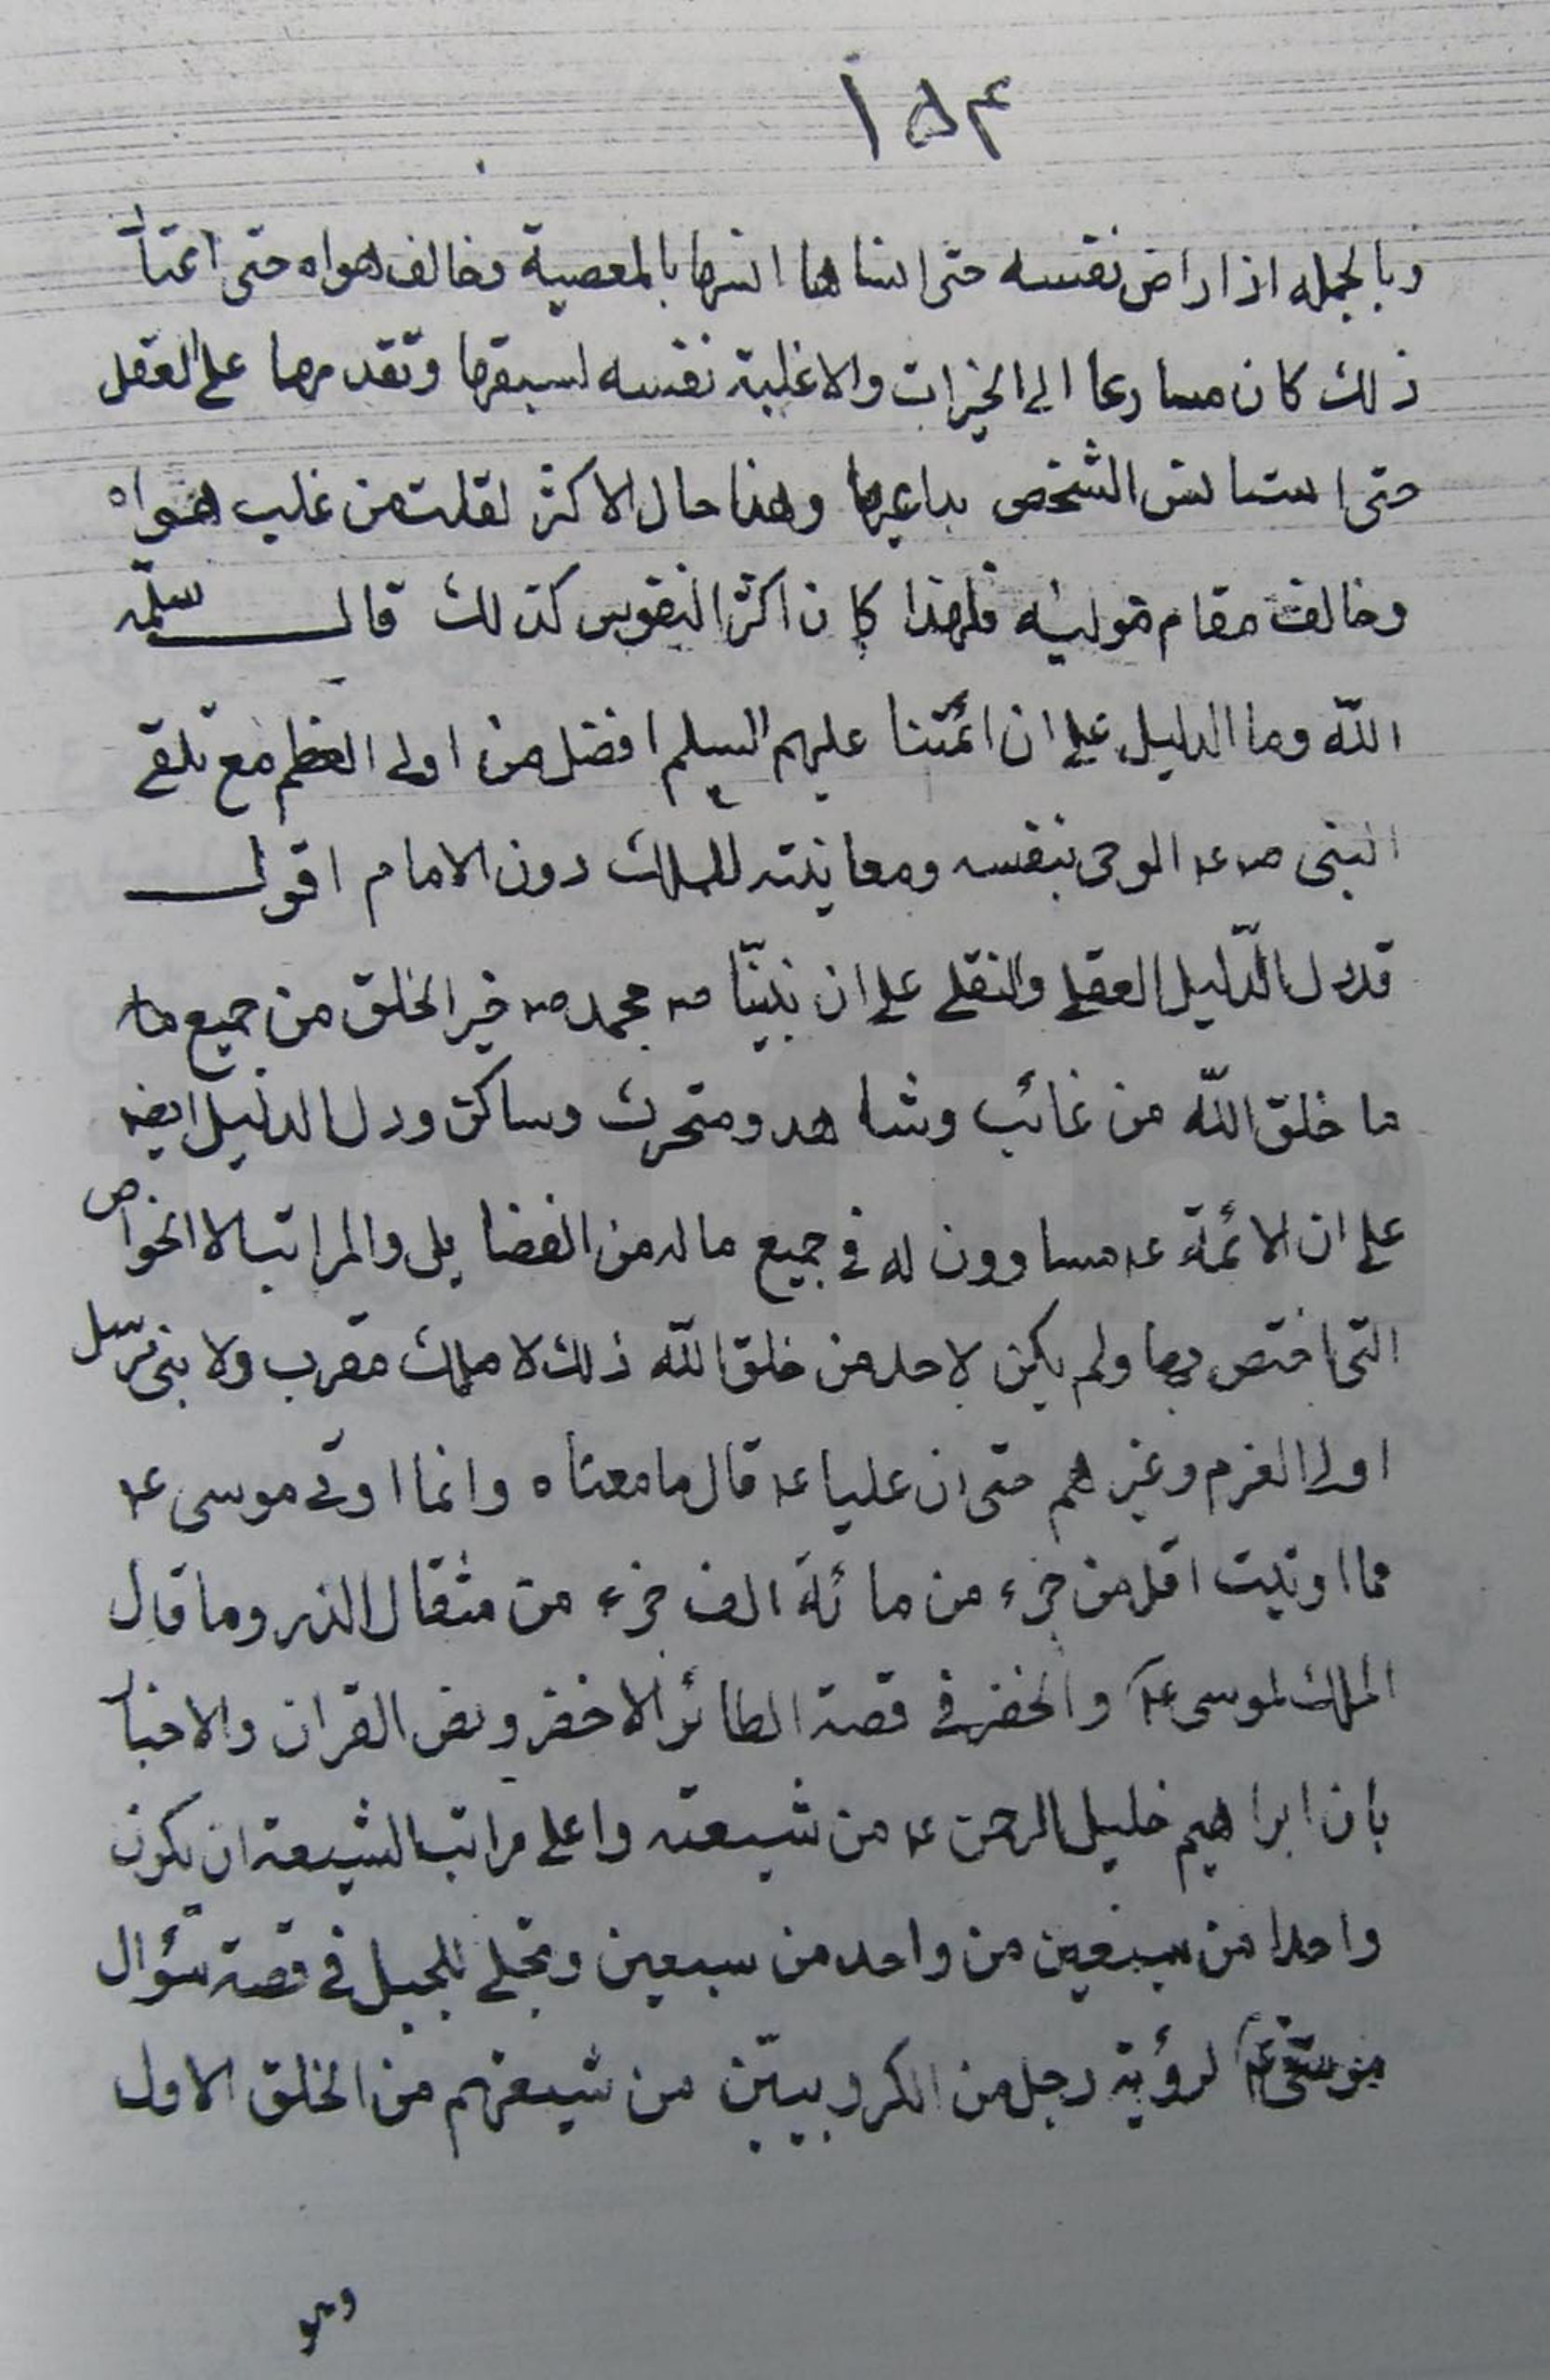 ١٥٤
وبالجمله اذا راض نفسه حتى انساها انسها بالمعصية وخالف هواه حتى اعتاد
ذلك كان مسارعا الى الخيرات والا غلبته نفسه لسبقها وتقدمها على العقل
حتى استانس الشخص بداعيها وهذا حال الاكثر لقلت من غلب هواه
وخالف مقام هوليه فلهذا كان اكثر النفوس كذلك قال سلمه
الله وما الدليل على ان ائمتنا عليهم السلم افضل من اولى العظم مع تلقے
النبى صہ عہ الوحى بنفسه ومعاينته للملك دون الامام اقول
قد دل الدّليل العقلے والنقلے على ان نبيّنا صہ محمد صہ خير الخلق من جميع ما
ما خلق اللّه من غائب وشاهد ومتحرك وساكن ودل الدليل ايضہ
على ان الائمة عہ مساوون له فى جميع ماله من الفضايل والمراتب الا الخواص
التى اختص بها ولم يكن لاحد من خلق اللّه ذلك لا ملك مقرب ولا بنى مرسل
اولى العزم وغيرهم حتى ان عليا عہ قال ما معناه وانما اوتى موسى عہ
مما اوتيت اقل من جزء من مائة الف جزء من مثقال الذر وما قال
الملك لموسى عہ والخضر فى قصة الطائر الاخضر ونص القران والاخبار
بان ابراهيم خليل الرحمن عہ من شيعته واعلى مراتب الشيعة ان يكون
واحدا من سبعين من واحد من سبعين وتجلى للجبل فى قصة سؤال
موسى عہ لرؤية رجل من الكروبيين من شيعتهم من الخلق الاول
وهو